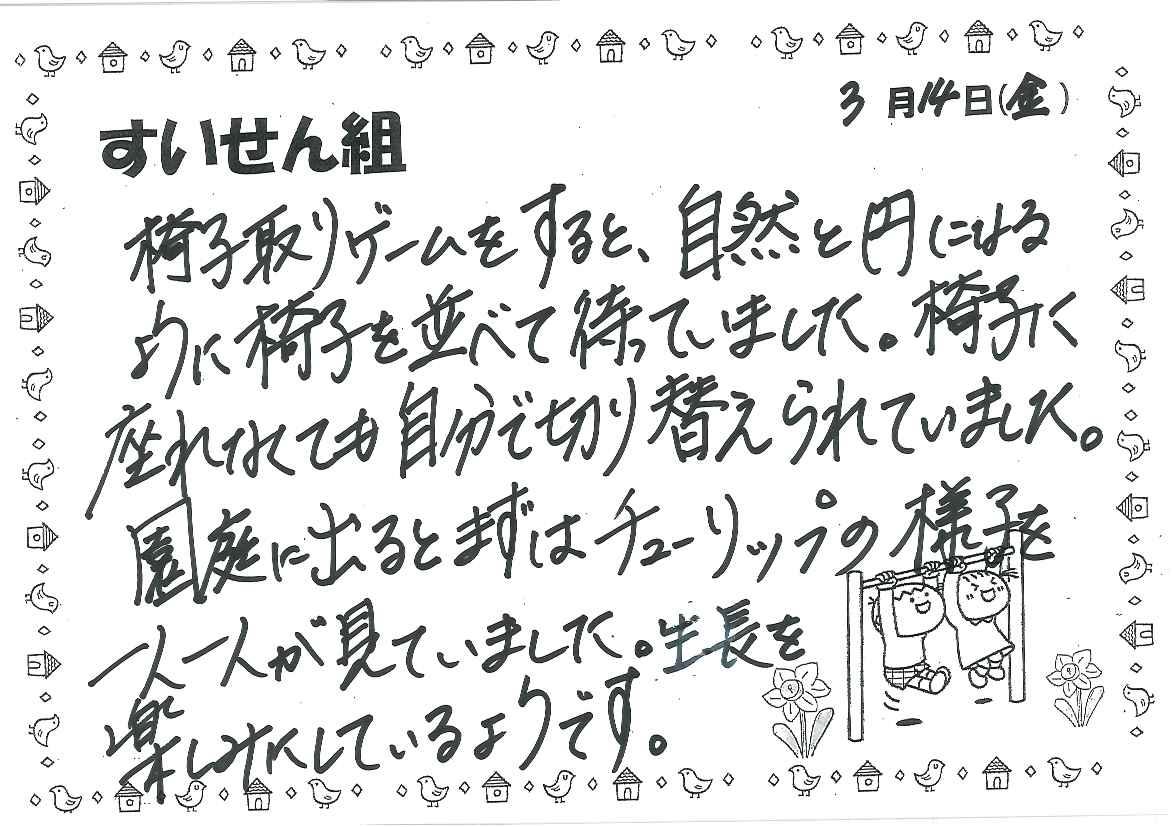 3月14日(金)
すいせん組
椅子取りゲームをすると、自然と円になる
ように椅子を並べて待っていました。椅子に
座れなくても自分で切り替えられていました。
園庭に出るとまずはチューリップの様子を
一人一人が見ていました。生長を
楽しみにしているようです。